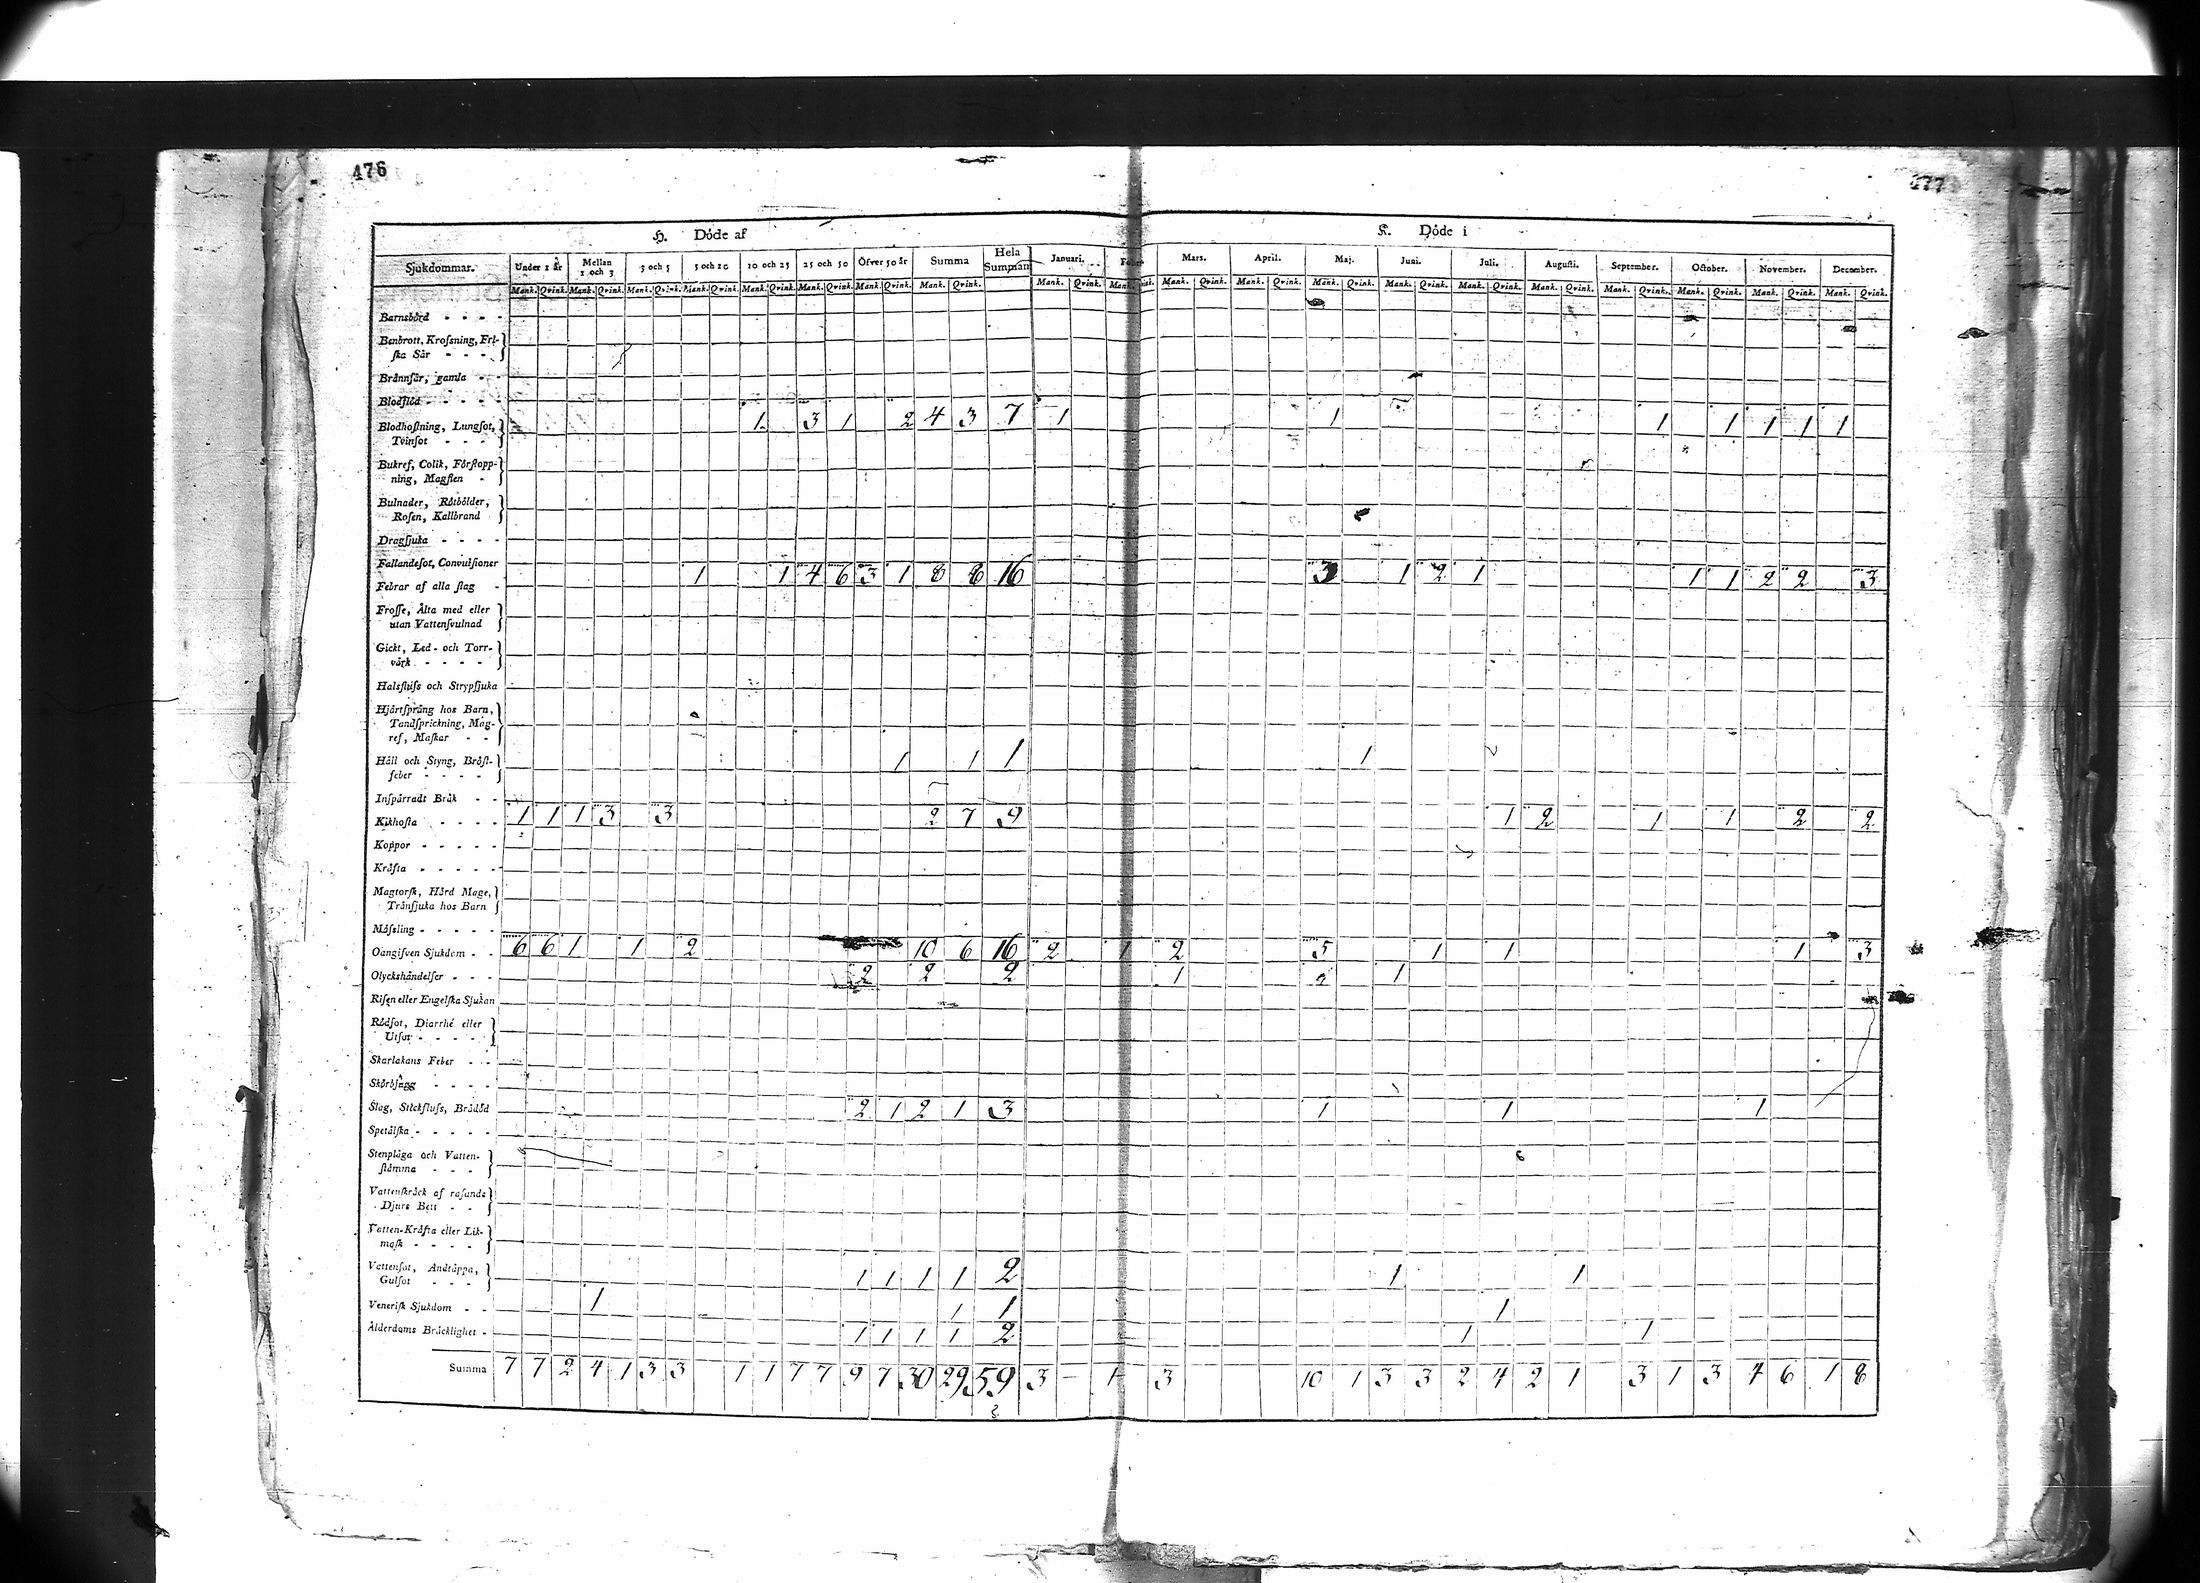 476
477
H. Döde af
K. Döde i
Sjukdommar. Under 1 år Mellan 1 och 3 3 och 5 5 och 10 10 och 25 25 och 50 Öfver 50 år Summa Hela Summan Januari. Febr Mars. April. Maj. Juni. Juli. Augusti. September. October. November. December.
Mank. Qvink. Mank. Qvink. Mank. Qvink. Mank. Qvink. Mank. Qvink. Mank. Qvink. Mank. Qvink. Mank. Qvink. Mank. Qvink. Mank. Qvink. Mank. Qvink. Mank. Qvink. Mank. Qvink. Mank. Qvink. Mank. Qvink. Mank. Qvink. Mank. Qvink. Mank. Qvink. Mank. Qvink. Mank. Qvink.
Barnsbörd - - - -
Benbrott, Krosning, Fri-
ska Sår - - -
Brännsår, gamla - -
Blodflöd - - - -
Blodhostning, Lungsot, 1 3 1 2 4 3 7 1 1 1 1 1 1 1
Tvinsot - - -
Bukref, Colik, Förstopp-
ning, Magsten -
Bulnader, Rötbölder,
Rosen, Kallbrand
Dragsjuka - - - -
Fallandesot, Convulsioner
Febrar af alla slag - 1 1 4 6 3 1 8 8 16 3 1 2 1 1 1 2 2 3
Frosse, Älta med eller
utan Vattensvulnad
Gickt, Led- och Torr-
värk - - - -
Halsfluss och Strypsjuka
Hjärtsprång hos Barn,
Tandsprickning, Mag-
ref, Maskar - -
Håll och Styng, Bröst- 1 1 1 1
feber - - - -
Inspärradt Bråk - -
Kikhosta - - - - 1 1 1 3 3 2 7 9 1 2 1 1 2 2
Koppor - - - - -
Kräfta - - - - -
Magtorsk, Hård Mage,
Tränsjuka hos Barn
Mässling - - - - -
Oangifven Sjukdom - - 6 6 1 1 2 10 6 16 2 1 2 5 1 1 1 3
Olyckshändelser - - - 2 2 2 1 1
Risen eller Engelska Sjukan
Rödsot, Diarrhé eller
Utsot - - - -
Skarlakans Feber - -
Skörbjugg - - - -
Slag, Stickfluss, Brådöd 2 1 2 1 3 1 1 1
Spetälska - - - - -
Stenplåga och Vatten-
stämma - - -
Vattuskräck af rasande
Djurs Bett - -
Vatten-Kräfta eller Lik-
mask - - - -
Vattensot, Andtäppa, 1 1 1 1 2 1 1
Gulsot - - -
Venerisk Sjukdom - - 1 1 1 1
Ålderdoms Bräcklighet - 1 1 1 1 2 1 1
Summa 7 7 2 4 1 3 3 1 1 7 7 9 7 30 29 59 3 - 1 3 10 1 3 3 2 4 2 1 3 1 3 4 6 1 8